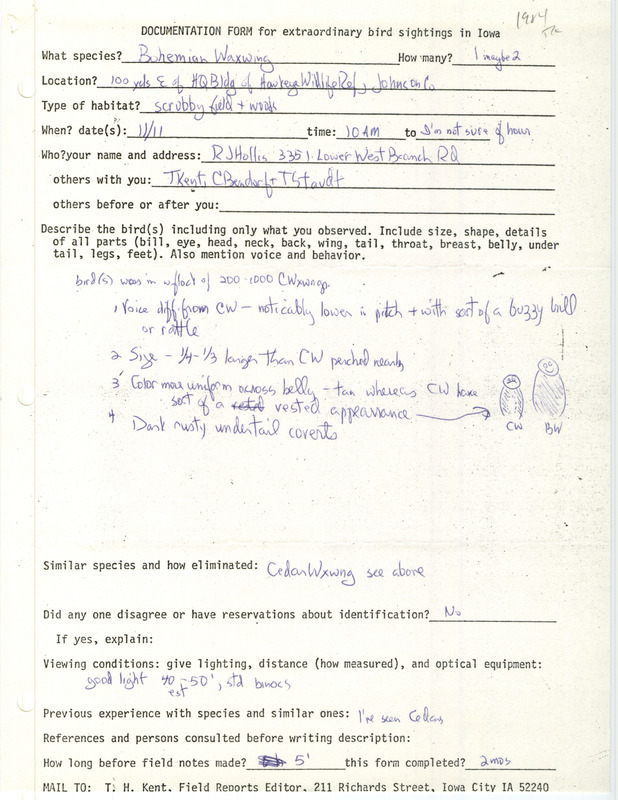 1984
TK
DOCUMENTATION FORM for extraordinary bird sightings in Iowa
What species? Bohemian Waxwing How many? 1 maybe 2
Location? 100 yds E of HQ Bldg of Hawkeye Wildlife Ref, Johnson Co
Type of habitat? scrubby field + woods
When? date(s): 11/11 time: 10 AM to I'm not sure of hour
Who?your name and address: RJ Hollis 3351 Lower West Branch Rd
others with you: TKent, CBendorf + TStaudt
others before or after you:
Describe the bird(s) including only what you observed. Include size, shape, details
of all parts (bill, eye, head, neck, back, wing, tail, throat, breast, belly, under
tail, legs, feet). Also mention voice and behavior.
bird(s) was in w flock of 200-1000 CWxwngs.
1 Voice diff. from CW - noticably lower in pitch + with sort of a buzzy trill
or rattle
2 Size - 1/4-1/3 larger than CW perched nearby
3 Color more uniform across belly - tan whereas CW have
sort of a vested appearance
CW BW
4 Dark rusty undertail coverts
Similar species and how eliminated: Cedar Wxwng see above
Did any one disagree or have reservations about identification? No
If yes, explain:
Viewing conditions: give lighting, distance (how measured), and optical equipment:
good light 40-50', std binocs
est
Previous experience with species and similar ones: I've seen Cedars
References and persons consulted before writing description:
How long before field notes made? 5' this form completed? 2 mos
MAIL TO: T. H. Kent, Field Reports Editor, 211 Richards Street, Iowa City IA 52240